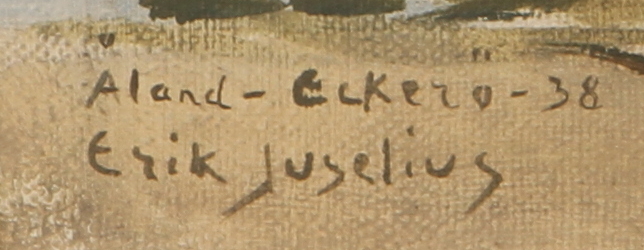 Åland - Eckerö - 38
Erik Juselius